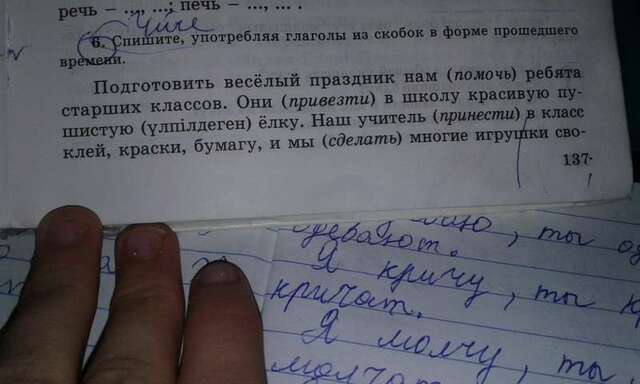 речь – ..., ...; печь – ..., ... .
Үйге
6. Спишите, употребляя глаголы из скобок в форме прошедшего
времени.
Подготовить весёлый праздник нам (помочь) ребята
старших классов. Они (привезти) в школу красивую пу-
шистую (үлпілдеген) ёлку. Наш учитель (принести) в класс
клей, краски, бумагу, и мы (сделать) многие игрушки сво-
137
, ты од
девают.
Я кричу, ты к
кричат.
Я молчу, ты
молчат